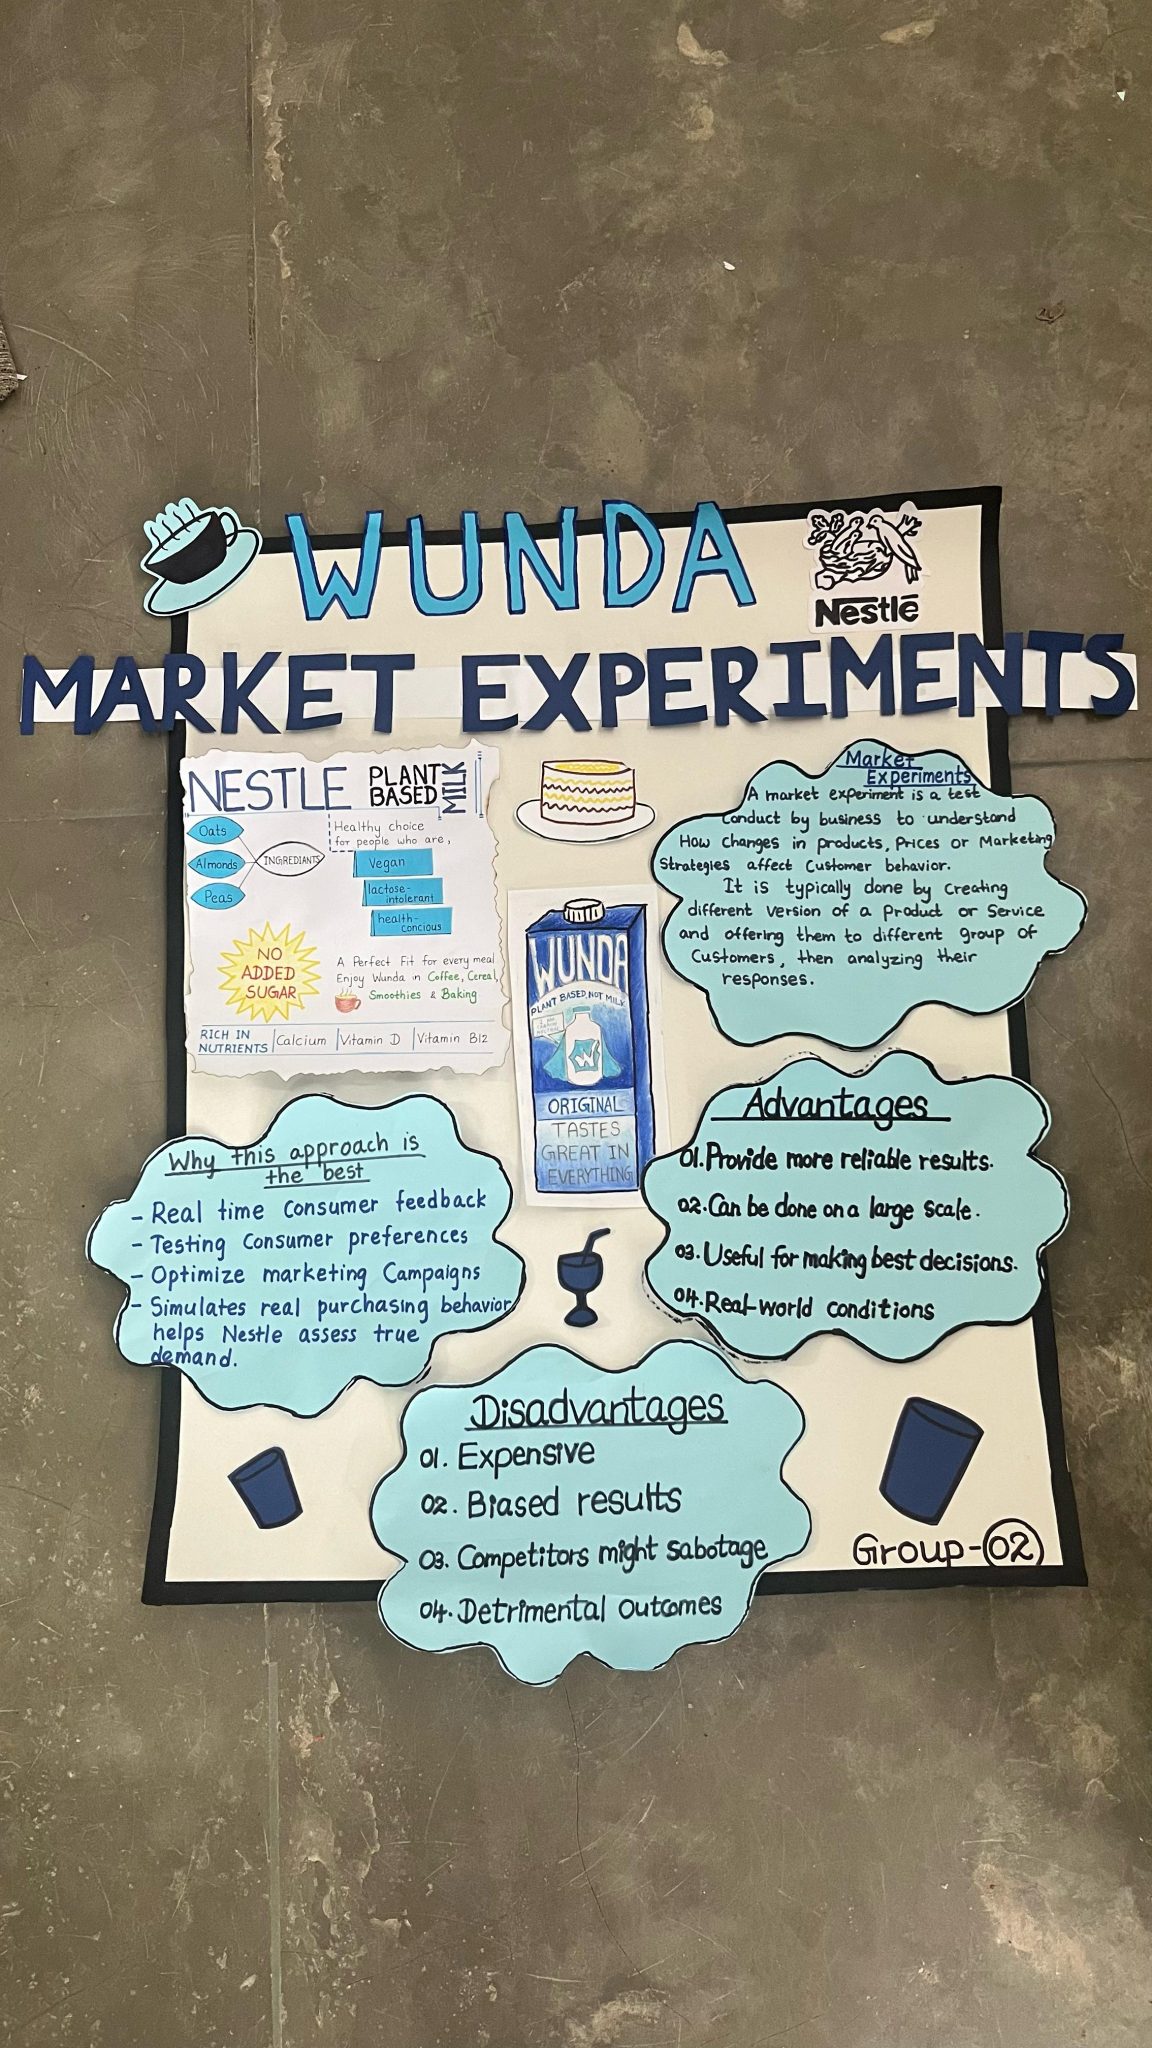 WUNDA
Nestlé
MARKET EXPERIMENTS
NESTLE PLANT BASED MILK
Oats
Almonds
Peas
INGREDIANTS
Healthy choice
for people who are,
Vegan
lactose-
intolerant
health-
concious
NO
ADDED
SUGAR
A Perfect Fit for every meal
Enjoy Wunda in Coffee, Cereal,
Smoothies & Baking
RICH IN
NUTRIENTS
Calcium
Vitamin D
Vitamin B12
WUNDA
PLANT BASED, NOT MILK
W
ORIGINAL
TASTES
GREAT IN
EVERYTHING
Market
Experiments
A market experiment is a test
Conduct by business to understand
How changes in products, Prices or Marketing
Strategies affect Customer behavior.
It is typically done by Creating
different version of a Product or Service
and offering them to different group of
Customers, then analyzing their
responses.
Why this approach is
the best
- Real time Consumer feedback
- Testing Consumer preferences
- Optimize marketing Campaigns
- Simulates real purchasing behavior
helps Nestle assess true
demand.
Advantages
01. Provide more reliable results.
02. Can be done on a large scale.
03. Useful for making best decisions.
04. Real-world conditions
Disadvantages
01. Expensive
02. Biased results
03. Competitors might sabotage
04. Detrimental outcomes
Group-02